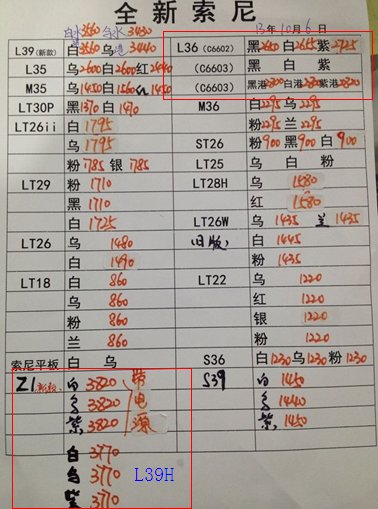 全新索尼
白水3560 乌水3430 13年10月6日
L39(新款) 白3560 乌港3440 L36 (C6602) 黑2650 白2655 紫2725
L35 乌2600 白2600 红2440 (C6603) 黑 白 紫
M35 乌1450 白1560 1450 (C6603) 黑港2800 白港2830 紫港2820
LT30P 黑1370 白1470 M36 白2295 乌2295
LT26ii 白 1795 粉2295 兰2295
乌 1795 ST26 粉900 黑900 白900
粉1785 银1785 LT25 乌 白 粉
LT29 粉 1710 LT28H 乌 1580
黑 1710 红 1580
白 1725 LT26W 乌 1435 兰 1435
LT26 乌 1480 旧版 白 1445
白 1490 粉 1435
LT18 白 860 LT22 乌 1220
乌 860 红 1220
粉 860 银 1220
兰 860 粉 1220
索尼平板 白 乌 S36 白1230 乌1230 粉1230
Z1(新款) 白 3820 带 S39 白 1450
乌 3820 电 乌 1440
紫 3820 源 紫 1450
白 3770
乌 3770 L39H
紫 3770